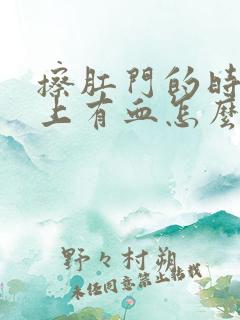 擦肛門的時
上有血怎麼
野々村朔
未经同意禁止转载